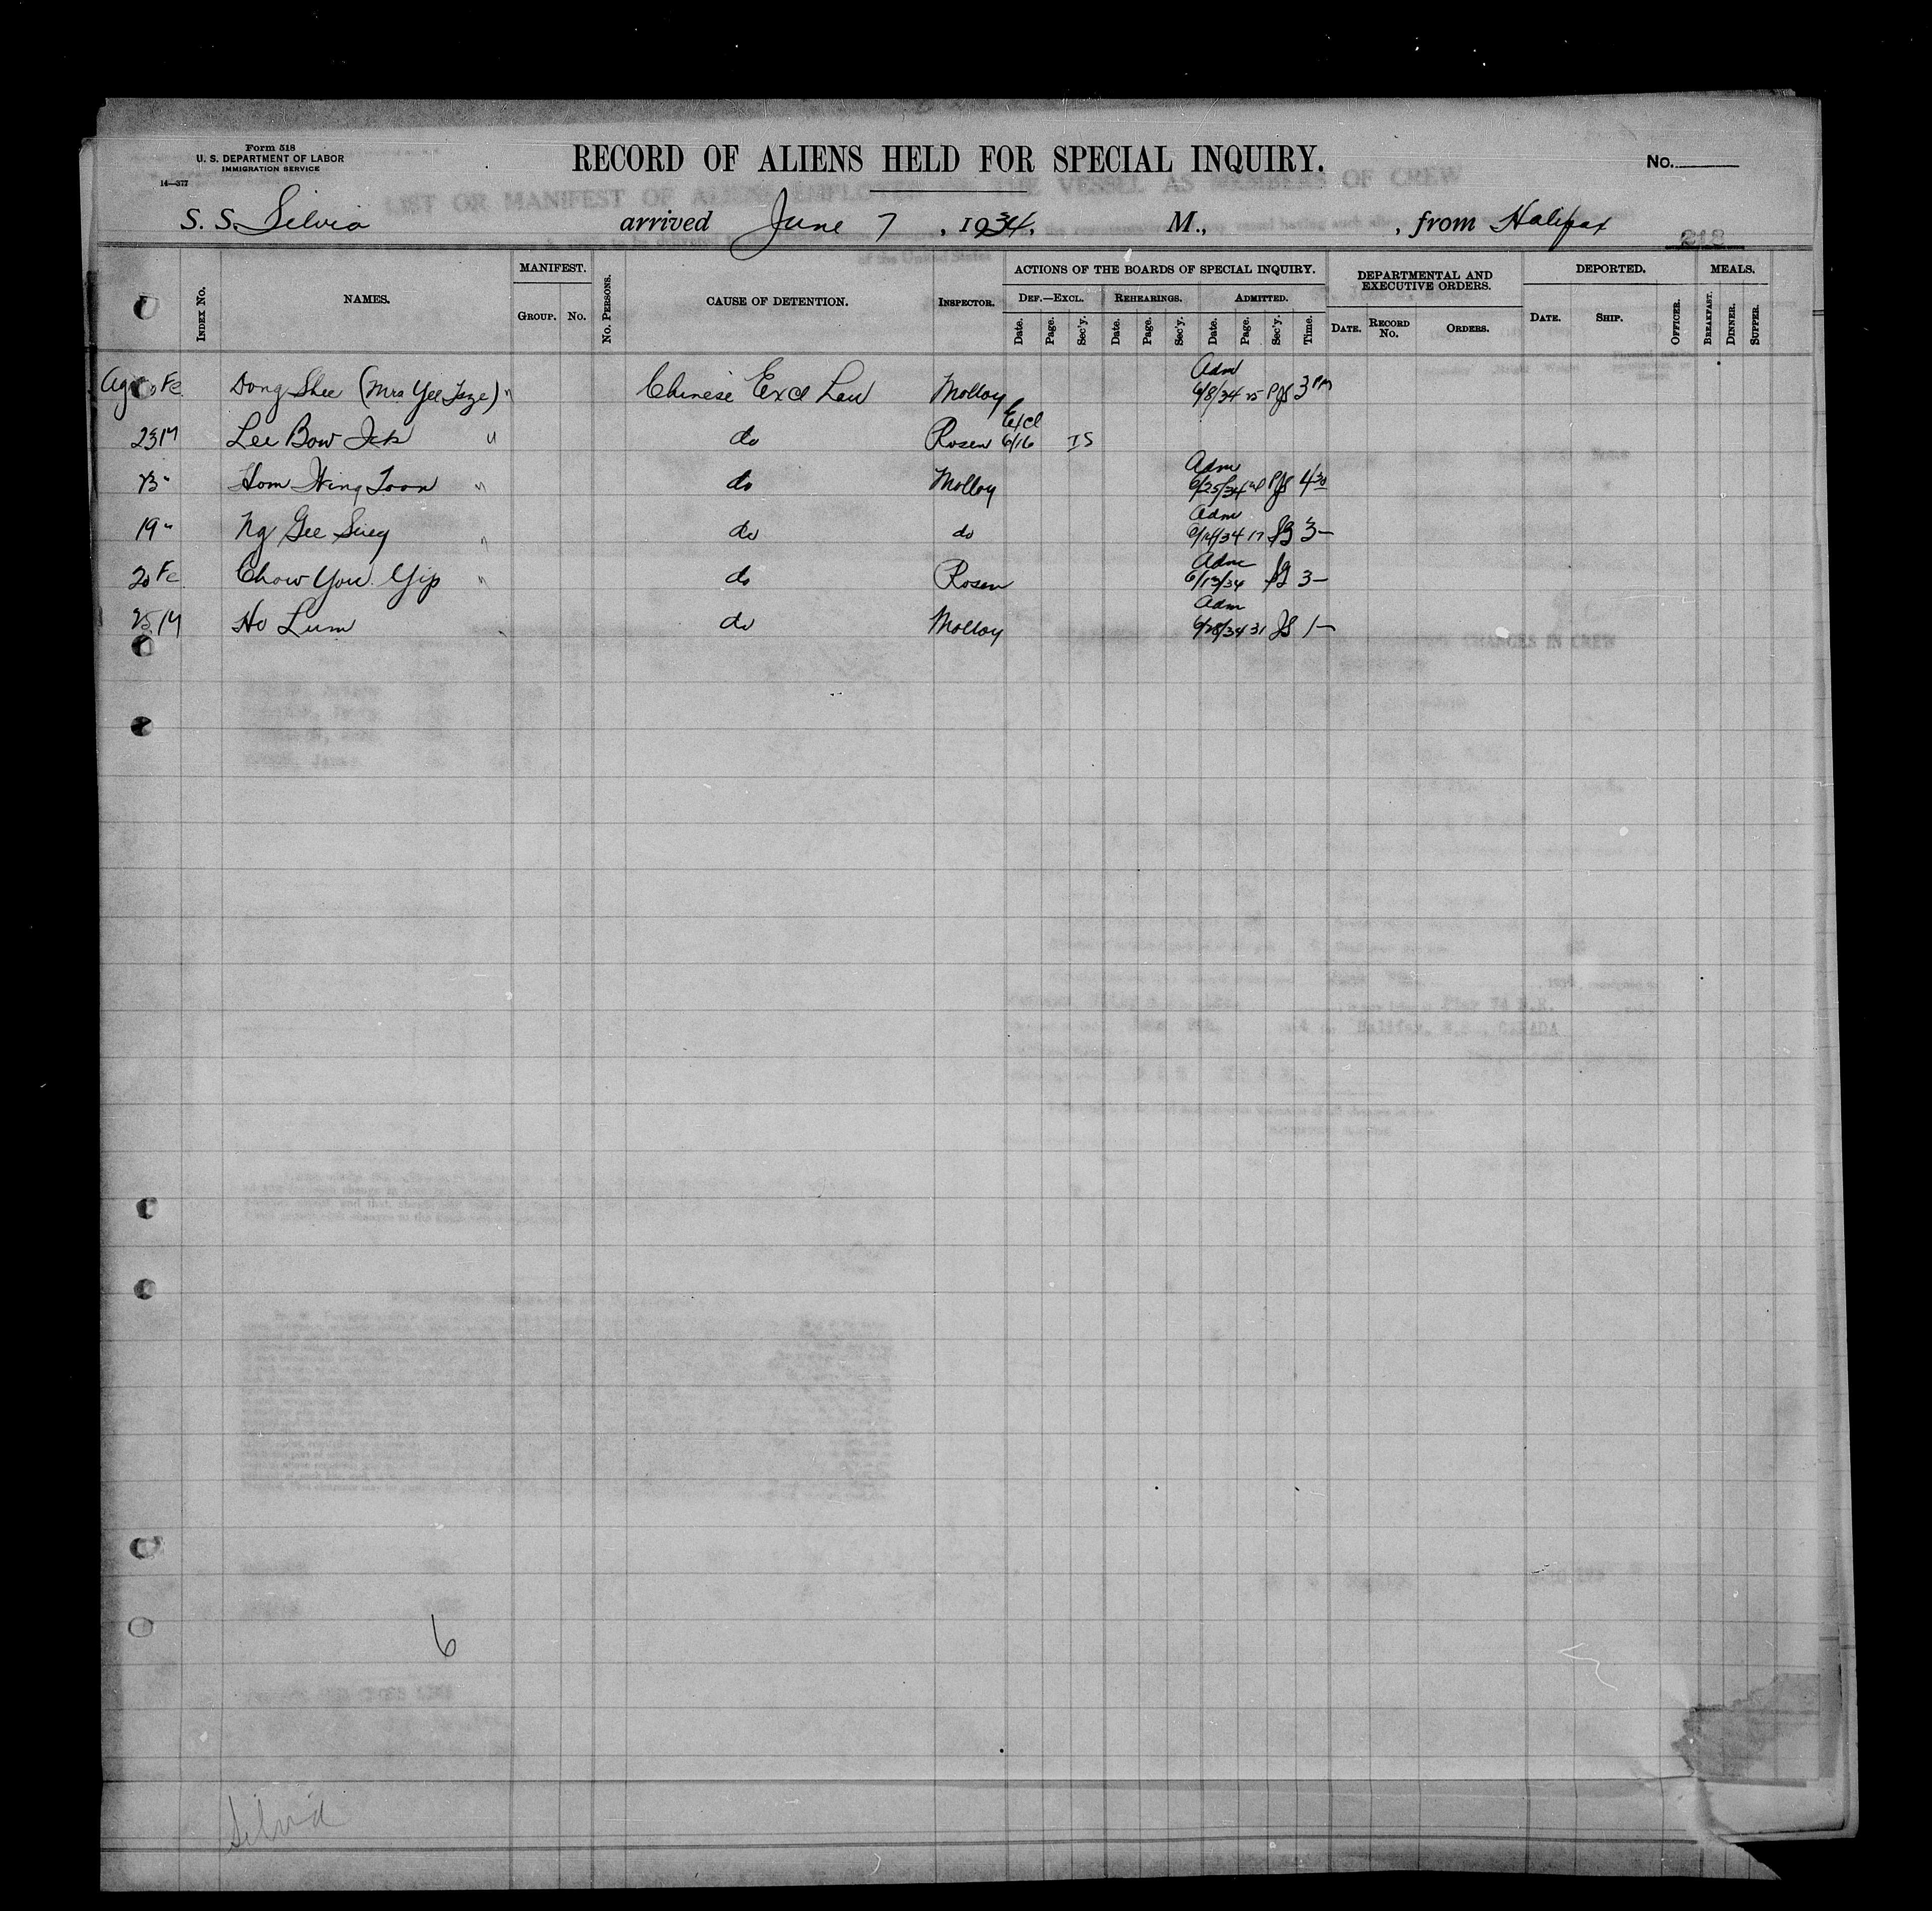 Form 518
U. S. DEPARTMENT OF LABOR
IMMIGRATION SERVICE
14—377
RECORD OF ALIENS HELD FOR SPECIAL INQUIRY.
No.
S. S. Silvia arrived June 7, 1934, M., , from Halifax
218
INDEX No. NAMES. MANIFEST. GROUP. No. No. PERSONS. CAUSE OF DETENTION. INSPECTOR. ACTIONS OF THE BOARDS OF SPECIAL INQUIRY. DEPARTMENTAL AND EXECUTIVE ORDERS. DEPORTED. MEALS.
DEF.—EXCL. REHEARINGS. ADMITTED.
Date. Page. Sec'y. Date. Page. Sec'y. Date. Page. Sec'y. Time. DATE. RECORD No. ORDERS. DATE. SHIP. OFFICER. BREAKFAST. DINNER. SUPPER.
Fe Dong Shee (Mrs Yee ) " Chinese Excl Law Molloy Adm 6/8/34 25 PJS 3 PM
23 M Lee Bow " do Rosen Excl 6/16 IS
" Hom Wing Toon " do Molloy Adm 6/25/34 PJS 4 30
19 " Ng Gee Suey " do do Adm 6/14/34 17 3—
20 Fe Chow You Yip " do Rosen Adm 6/13/34 3—
25 M Ho Lum do Molloy Adm 6/28/34 31 JS 1—
6
Silvia